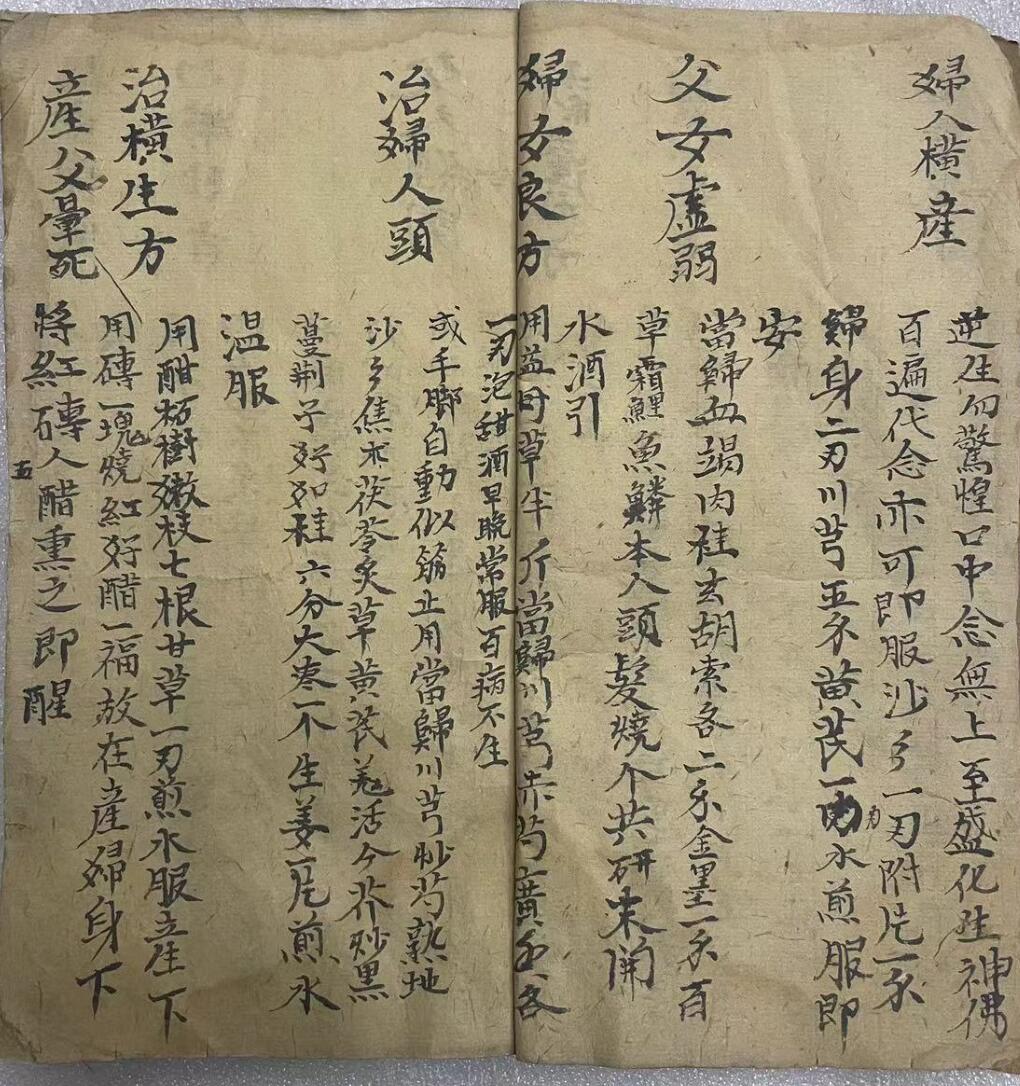 婦人橫産
逆生勿驚惶口中念無上至盛化生神佛
百遍代念亦可即服沙彡一刃附片一尔
歸身二刃川芎五尔黄芪一肉水煎服即
安
父女虛弱
當歸血竭肉桂玄胡索各二尔金墨一尔百
草霜鯉魚鱗本人頭髮燒个共研末開
水酒引
婦女良方
用益母草半斤當歸川芎赤芍廣皮各
一刃泡甜酒早晚常服百病不生
治婦人頭
或手腳自動似筋止用當歸川芎炒芍熟地
沙彡焦朮茯苓炙草黄芪羌活今芥炒黑
蔓荆子好如桂六分大枣一个生姜一片煎水
温服
治橫生方
用酣柘樹嫩枝七根甘草一刃煎水服立産下
用磚一塊燒紅好醋一福放在産婦身下
産父暈死
將紅磚人醋熏之即醒
五